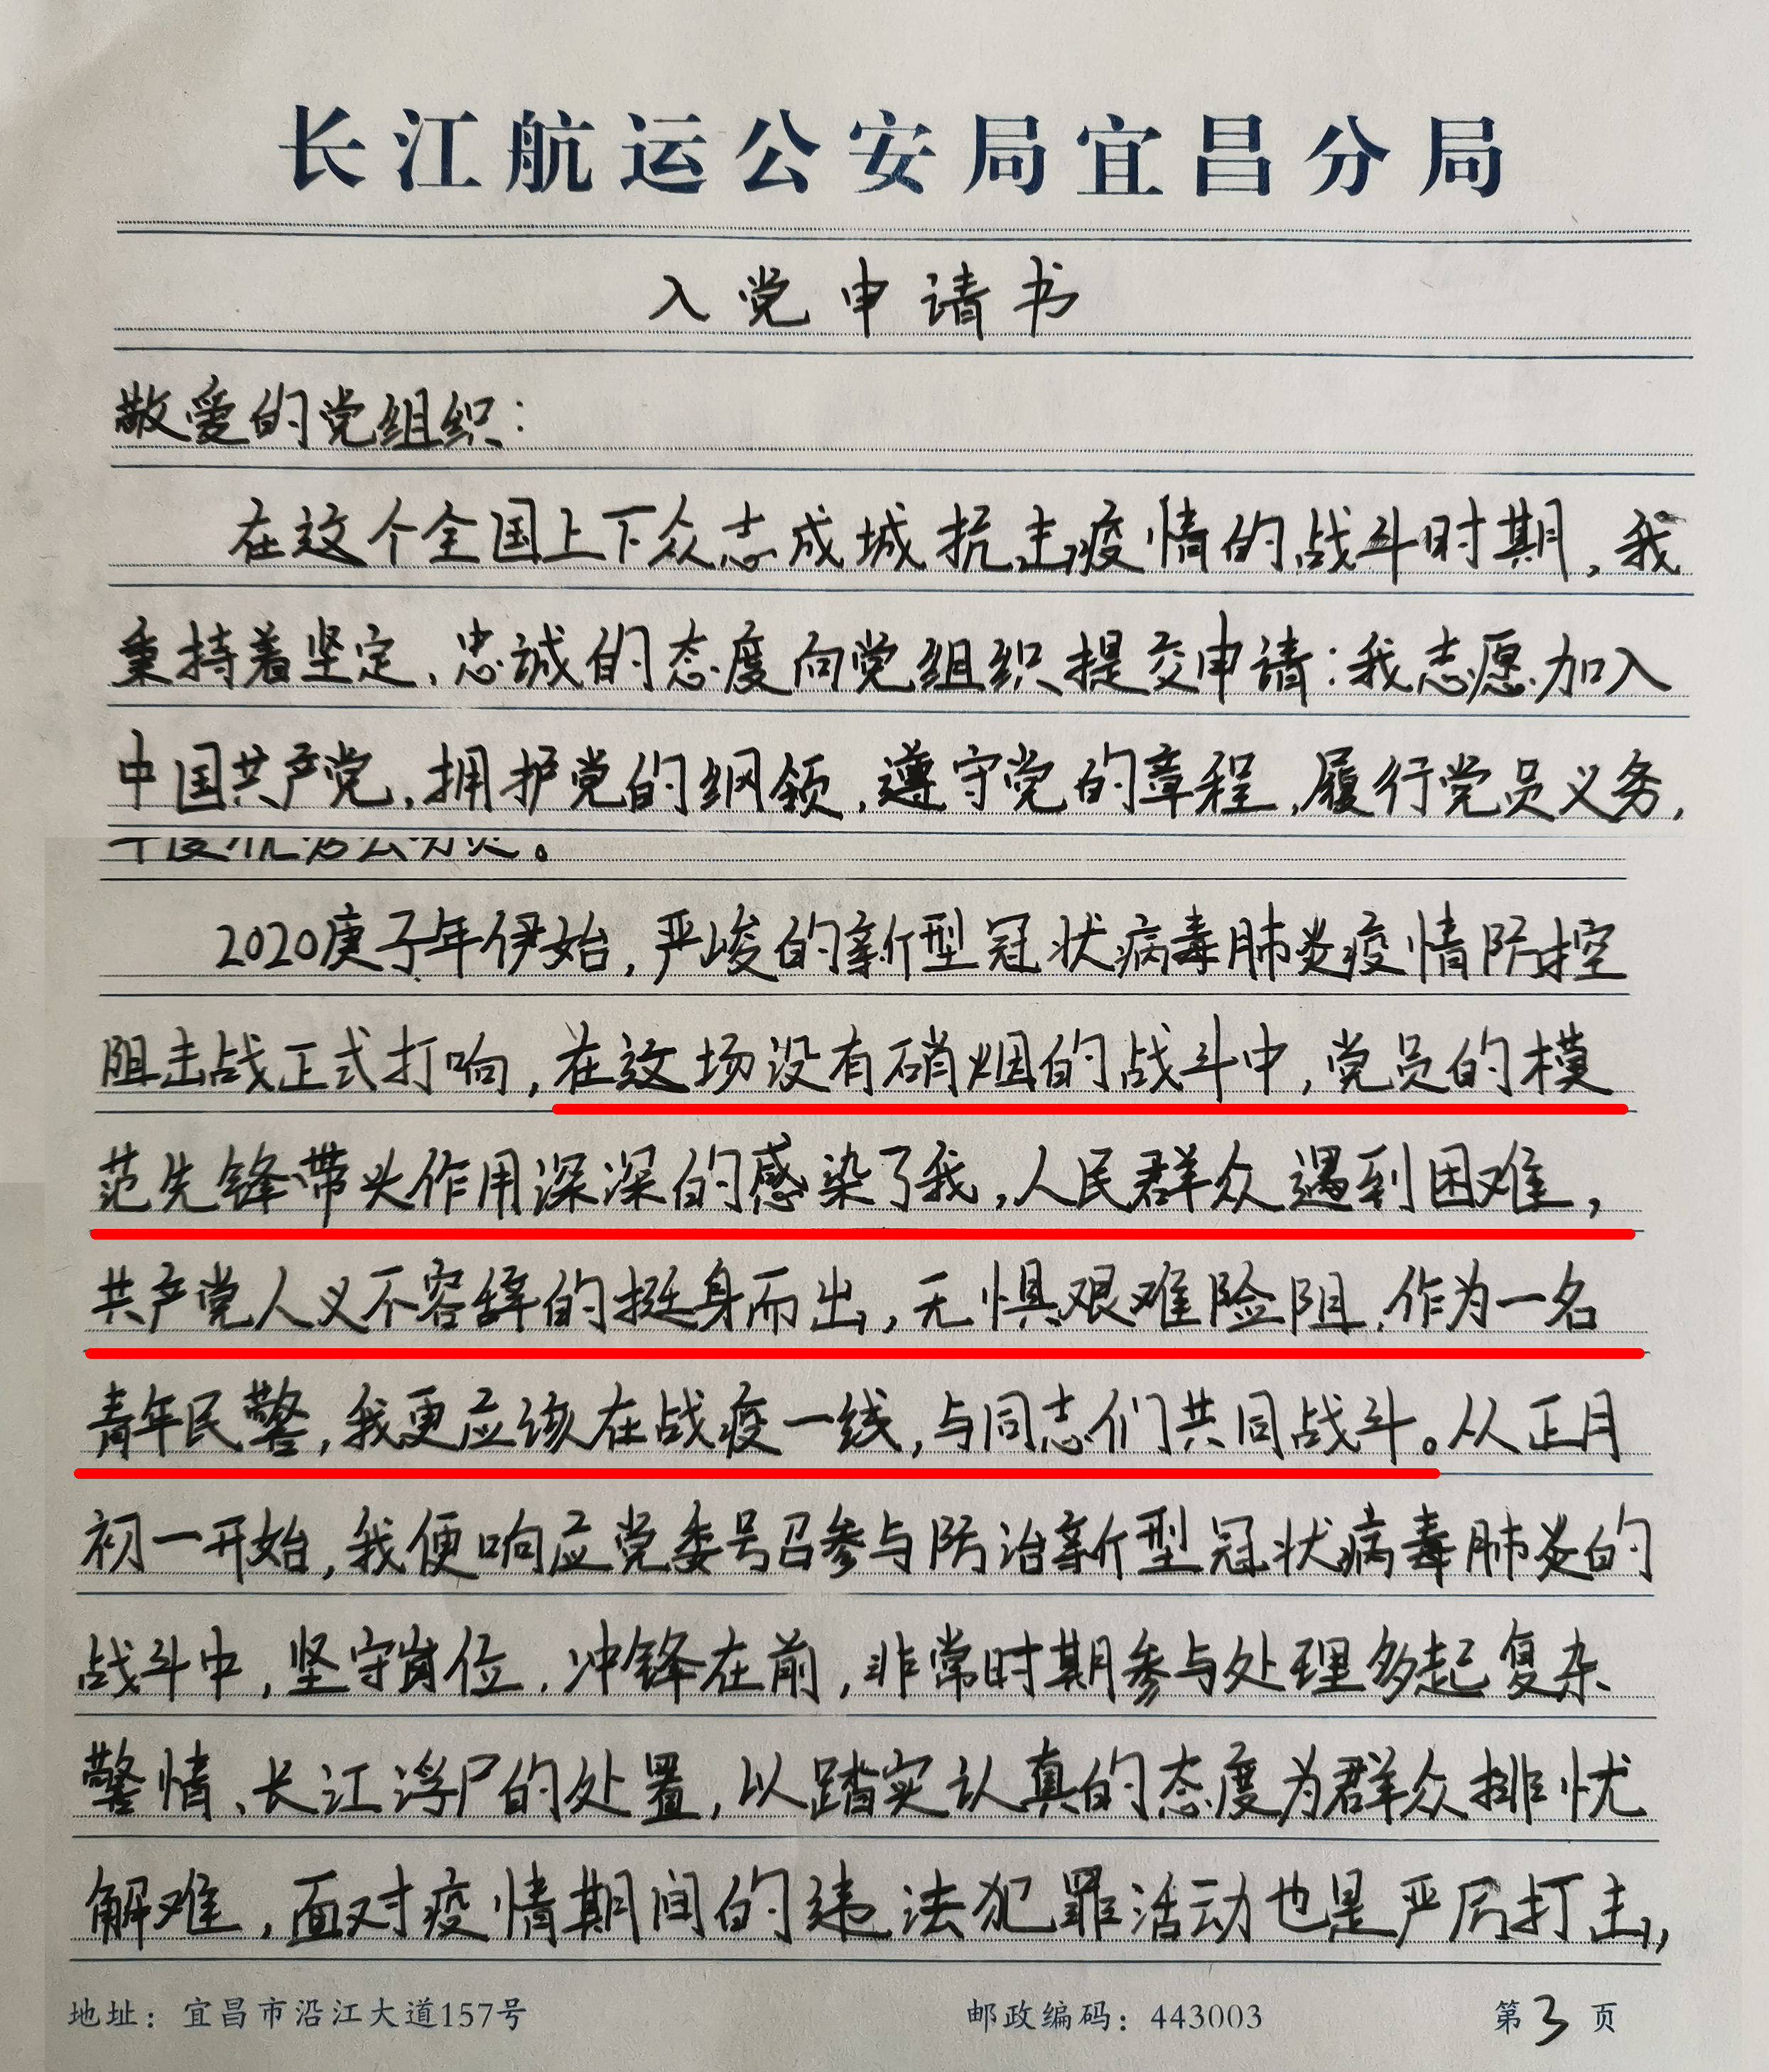 长江航运公安局宜昌分局
入党申请书
敬爱的党组织：
在这个全国上下众志成城抗击疫情的战斗时期，我
秉持着坚定、忠诚的态度向党组织提交申请：我志愿加入
中国共产党，拥护党的纲领，遵守党的章程，履行党员义务，
2020庚子年伊始，严峻的新型冠状病毒肺炎疫情防控
阻击战正式打响，在这场没有硝烟的战斗中，党员的模
范先锋带头作用深深的感染了我，人民群众遇到困难，
共产党人义不容辞的挺身而出，无惧艰难险阻，作为一名
青年民警，我更应该在战疫一线，与同志们共同战斗。从正月
初一开始，我便响应党委号召参与防治新型冠状病毒肺炎的
战斗中，坚守岗位，冲锋在前，非常时期参与处理多起复杂
警情、长江浮尸的处置，以踏实认真的态度为群众排忧
解难，面对疫情期间的违法犯罪活动也是严厉打击，
地址：宜昌市沿江大道157号 邮政编码：443003 第3页